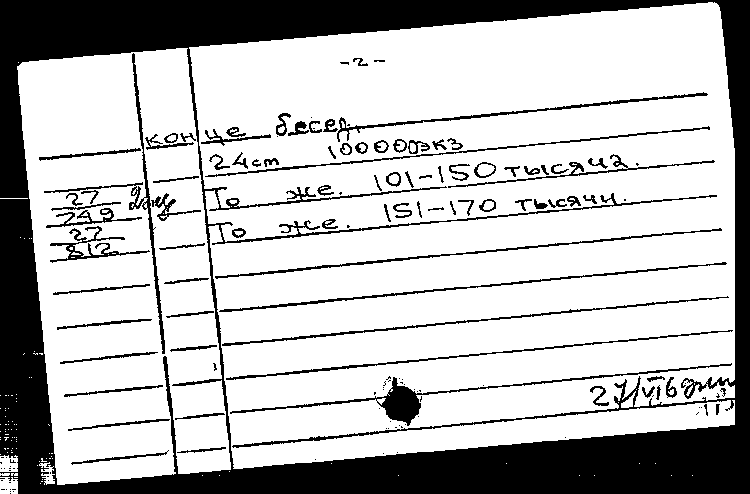 -2-
конце бесед.
24cm 100000экз
27 То же. 101-150 тысяча.
749
27 То же. 151-170 тысячи.
812
27/VI6